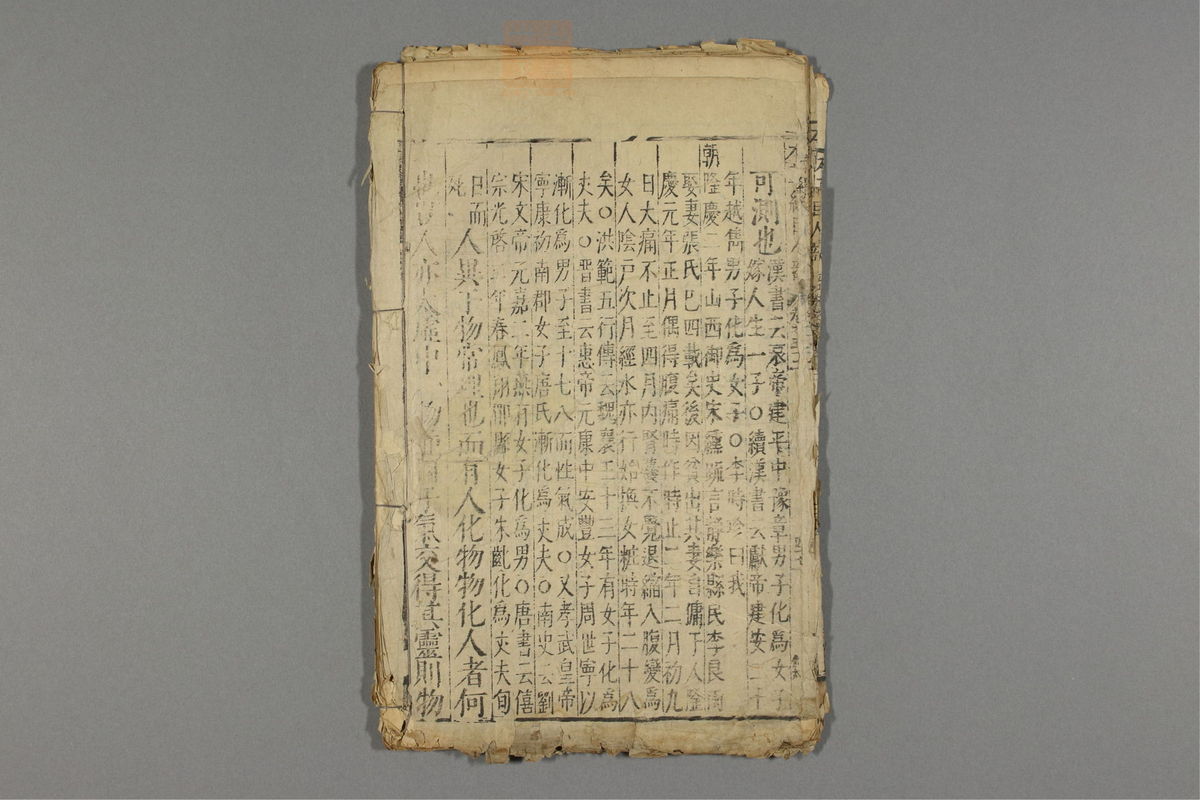 可測也
漢書云哀帝建平中豫章男子化為女子
嫁人生一子○續漢書云獻帝建安二十
年越雋男子化為女子○李時珍曰我
朝隆慶二年山西御史宋纁疏言靜樂縣民李良雨
娶妻張氏巳四載矣後因貧出其妻自傭于人隆
慶元年正月偶得腹痛時作時止二年二月初九
日大痛不止至四月內腎囊不覺退縮入腹變為
女人陰戶次月經水亦行始換女粧時年二十八
矣○洪範五行傳云魏襄王十三年有女子化為
丈夫○晉書云惠帝元康中安豐女子周世寧以
漸化為男子至十七八而性氣成○又孝武皇帝
寧康初南郡女子唐氏漸化為丈夫○南史云劉
宋文帝元嘉二年燕有女子化為男○唐書云僖
宗光啓二年春鳳翔郿縣女子朱齔化為丈夫旬
日而
死
人異于物常理也而有人化物物化人者何
亦太虛中一物
氣交得其靈則物